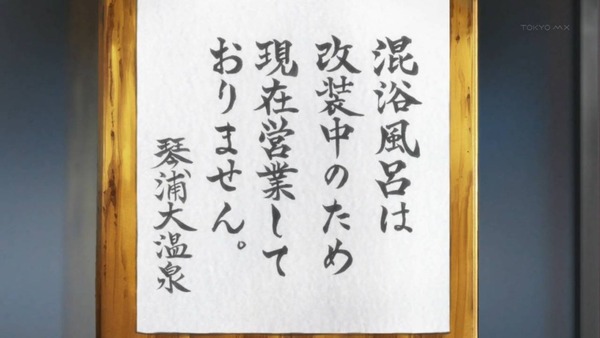 混浴風呂は
改装中のため
現在営業して
おりません。
琴浦大温泉
TOKYO MX